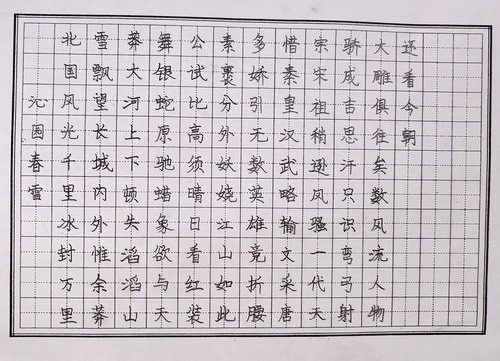 沁园春雪
北国风光千里冰封万里
雪飘望长城内外惟余莽
莽大河上下顿失滔滔山
舞银蛇原驰蜡象欲与天
公试比高须晴日看红装
素裹分外妖娆江山如此
多娇引无数英雄竞折腰
惜秦皇汉武略输文采唐
宗宋祖稍逊风骚一代天
骄成吉思汗只识弯弓射
大雕俱往矣数风流人物
还看今朝